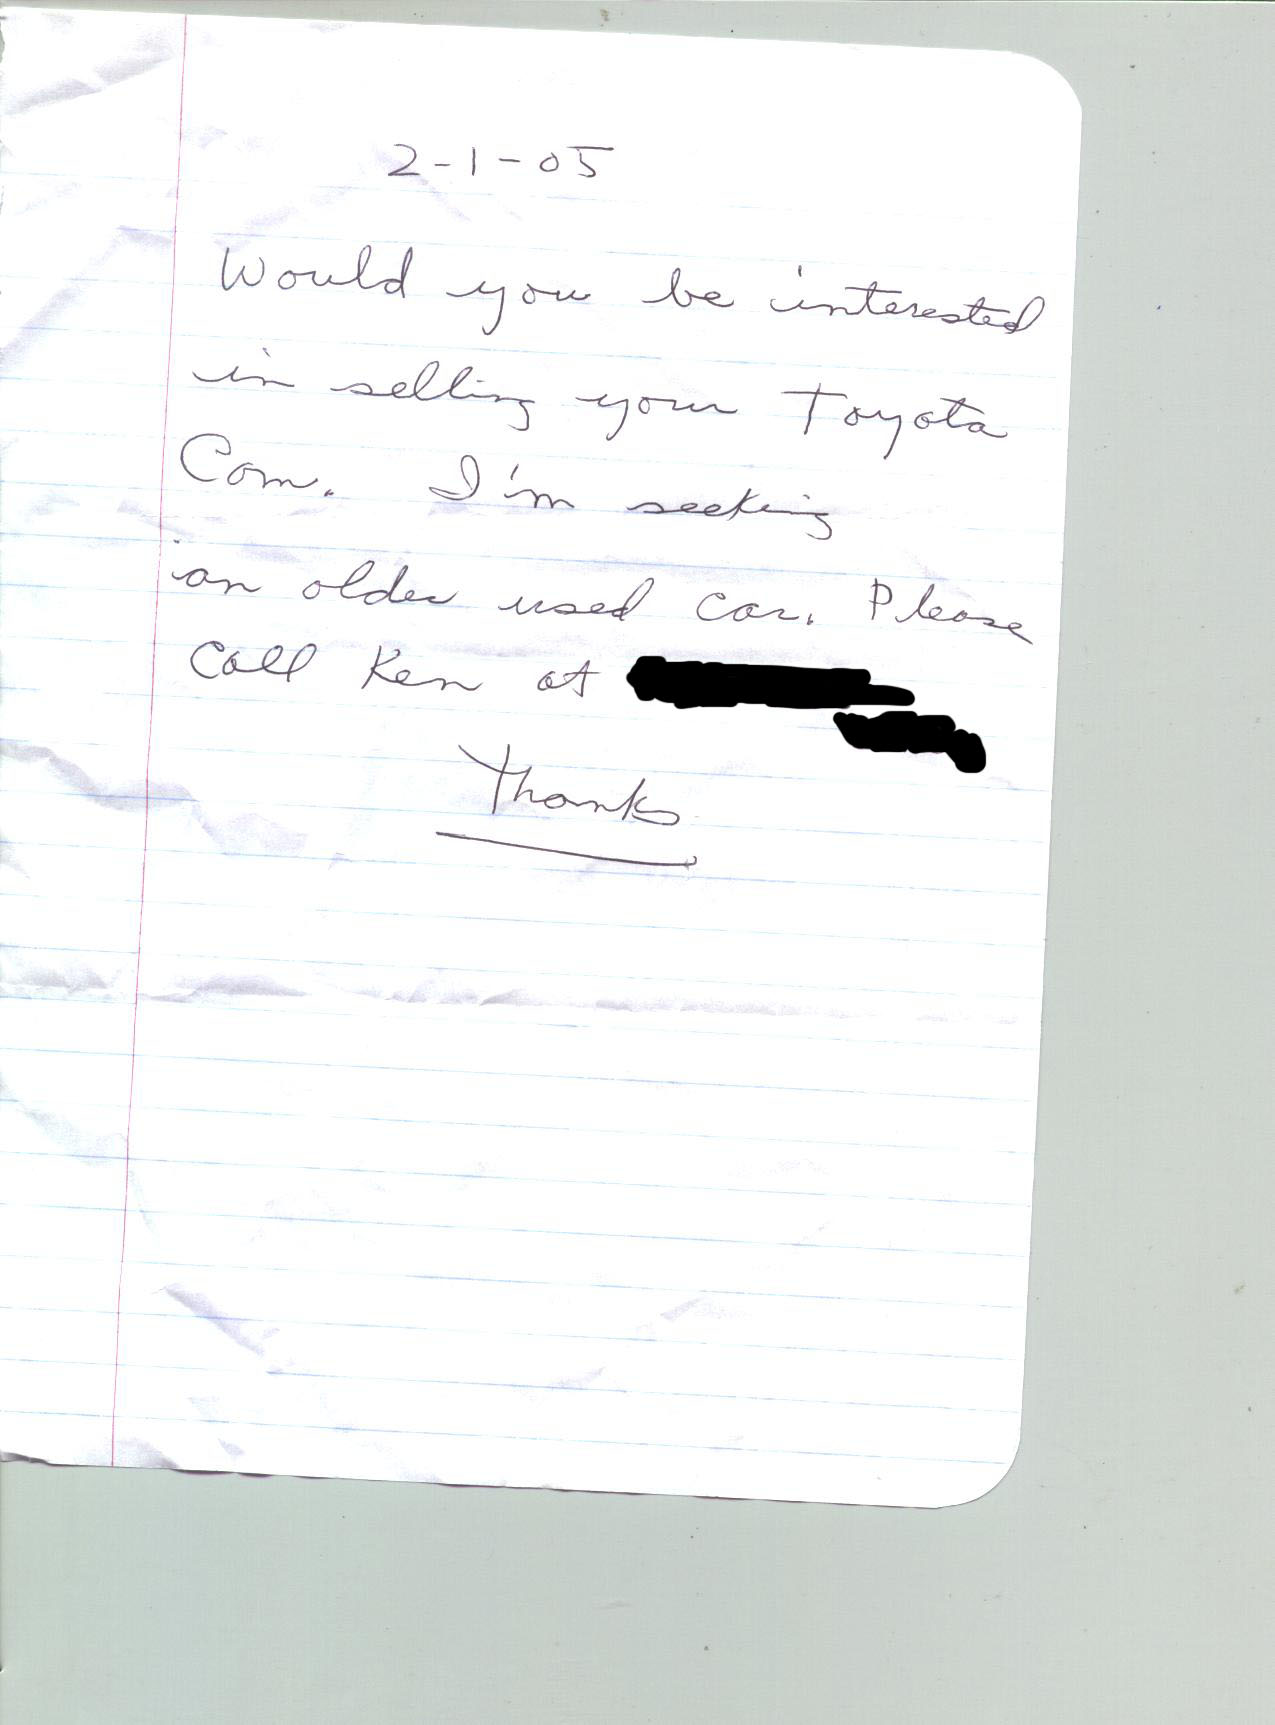 2-1-05
Would you be interested
in selling your Toyota
Cam. I'm seeking
an older used car. Please
call Ken at
Thanks